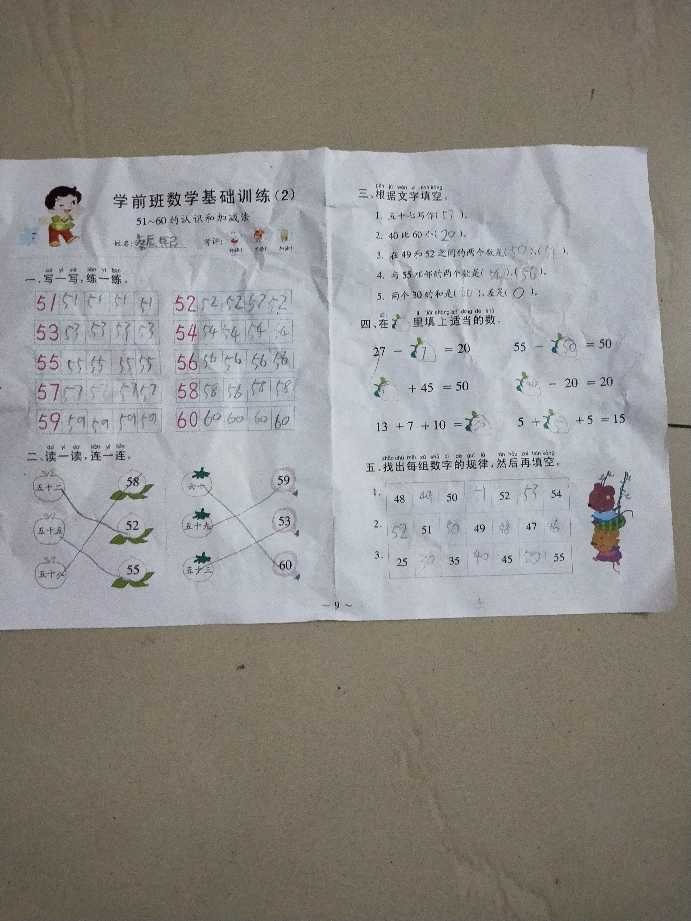 学前班数学基础训练(2)
51~60的认识和加减法
姓名:
一、写一写,练一练。
51 51 51 51 51
52 52 52 52 52
53 53 53 53 53
54 54 54 54
55 55 55 55 55
56 56 56 56 56
57 57 57 57
58 58 56 58 58
59 59 59 59 59
60 60 60 60 60
二、读一读,连一连。
五十二 58
五十五 52
五十八 55
六十 59
五十九 53
五十三 60
三、根据文字填空。
1. 五十七写作(57)。
2. 40比60小(20)。
3. 在49和52之间的两个数是(50)、(51)。
4. 与55相邻的两个数是(54)、(56)。
5. 两个30的和是( ),差是(0)。
四、在 里填上适当的数。
27 - 7 = 20
55 - = 50
+ 45 = 50
- 20 = 20
13 + 7 + 10 =
5 + + 5 = 15
五、找出每组数字的规律,然后再填空。
1. 48 49 50 51 52 53 54
2. 52 51 50 49 48 47
3. 25 30 35 40 45 55
~ 9 ~